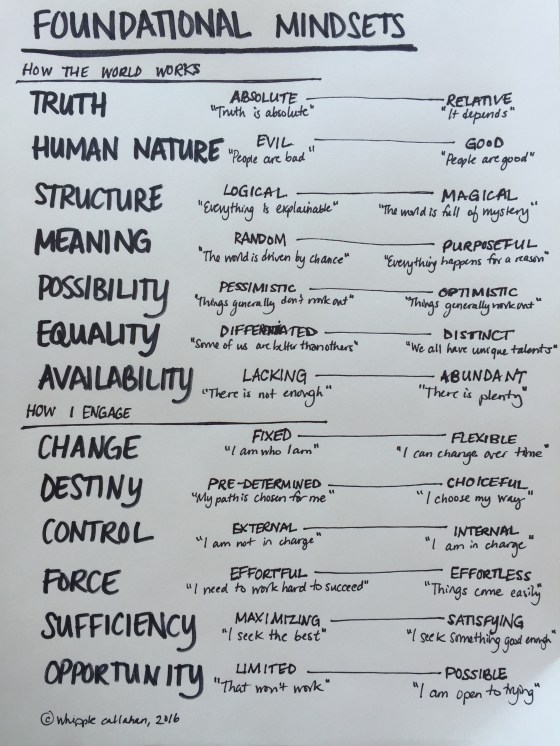 FOUNDATIONAL MINDSETS
HOW THE WORLD WORKS
TRUTH ABSOLUTE RELATIVE
"Truth is absolute" "It depends"
HUMAN NATURE EVIL GOOD
"People are bad" "People are good"
STRUCTURE LOGICAL MAGICAL
"Everything is explainable" "The world is full of mystery"
MEANING RANDOM PURPOSEFUL
"The world is driven by chance" "Everything happens for a reason"
POSSIBILITY PESSIMISTIC OPTIMISTIC
"Things generally don't work out" "Things generally work out"
EQUALITY DIFFERENTIATED DISTINCT
"Some of us are better than others" "We all have unique talents"
AVAILABILITY LACKING ABUNDANT
"There is not enough" "There is plenty"
HOW I ENGAGE
CHANGE FIXED FLEXIBLE
"I am who I am" "I can change over time"
DESTINY PRE-DETERMINED CHOICEFUL
"My path is chosen for me" "I choose my way"
CONTROL EXTERNAL INTERNAL
"I am not in charge" "I am in charge"
FORCE EFFORTFUL EFFORTLESS
"I need to work hard to succeed" "Things come easily"
SUFFICIENCY MAXIMIZING SATISFYING
"I seek the best" "I seek something good enough"
OPPORTUNITY LIMITED POSSIBLE
"That won't work" "I am open to trying"
© Whipple Callahan, 2016